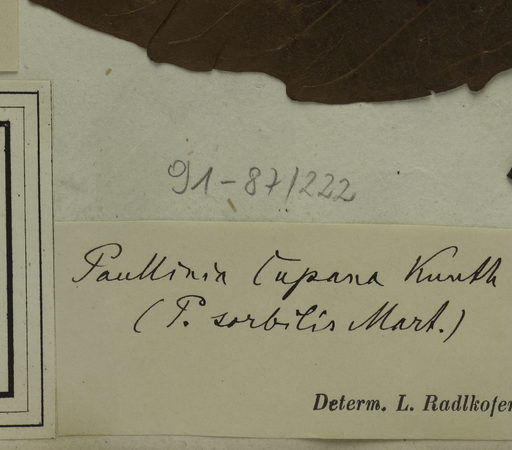 91-87/222
Paullinia Cupana Kunth
(P. sorbilis Mart.)
Determ. L. Radlkofer